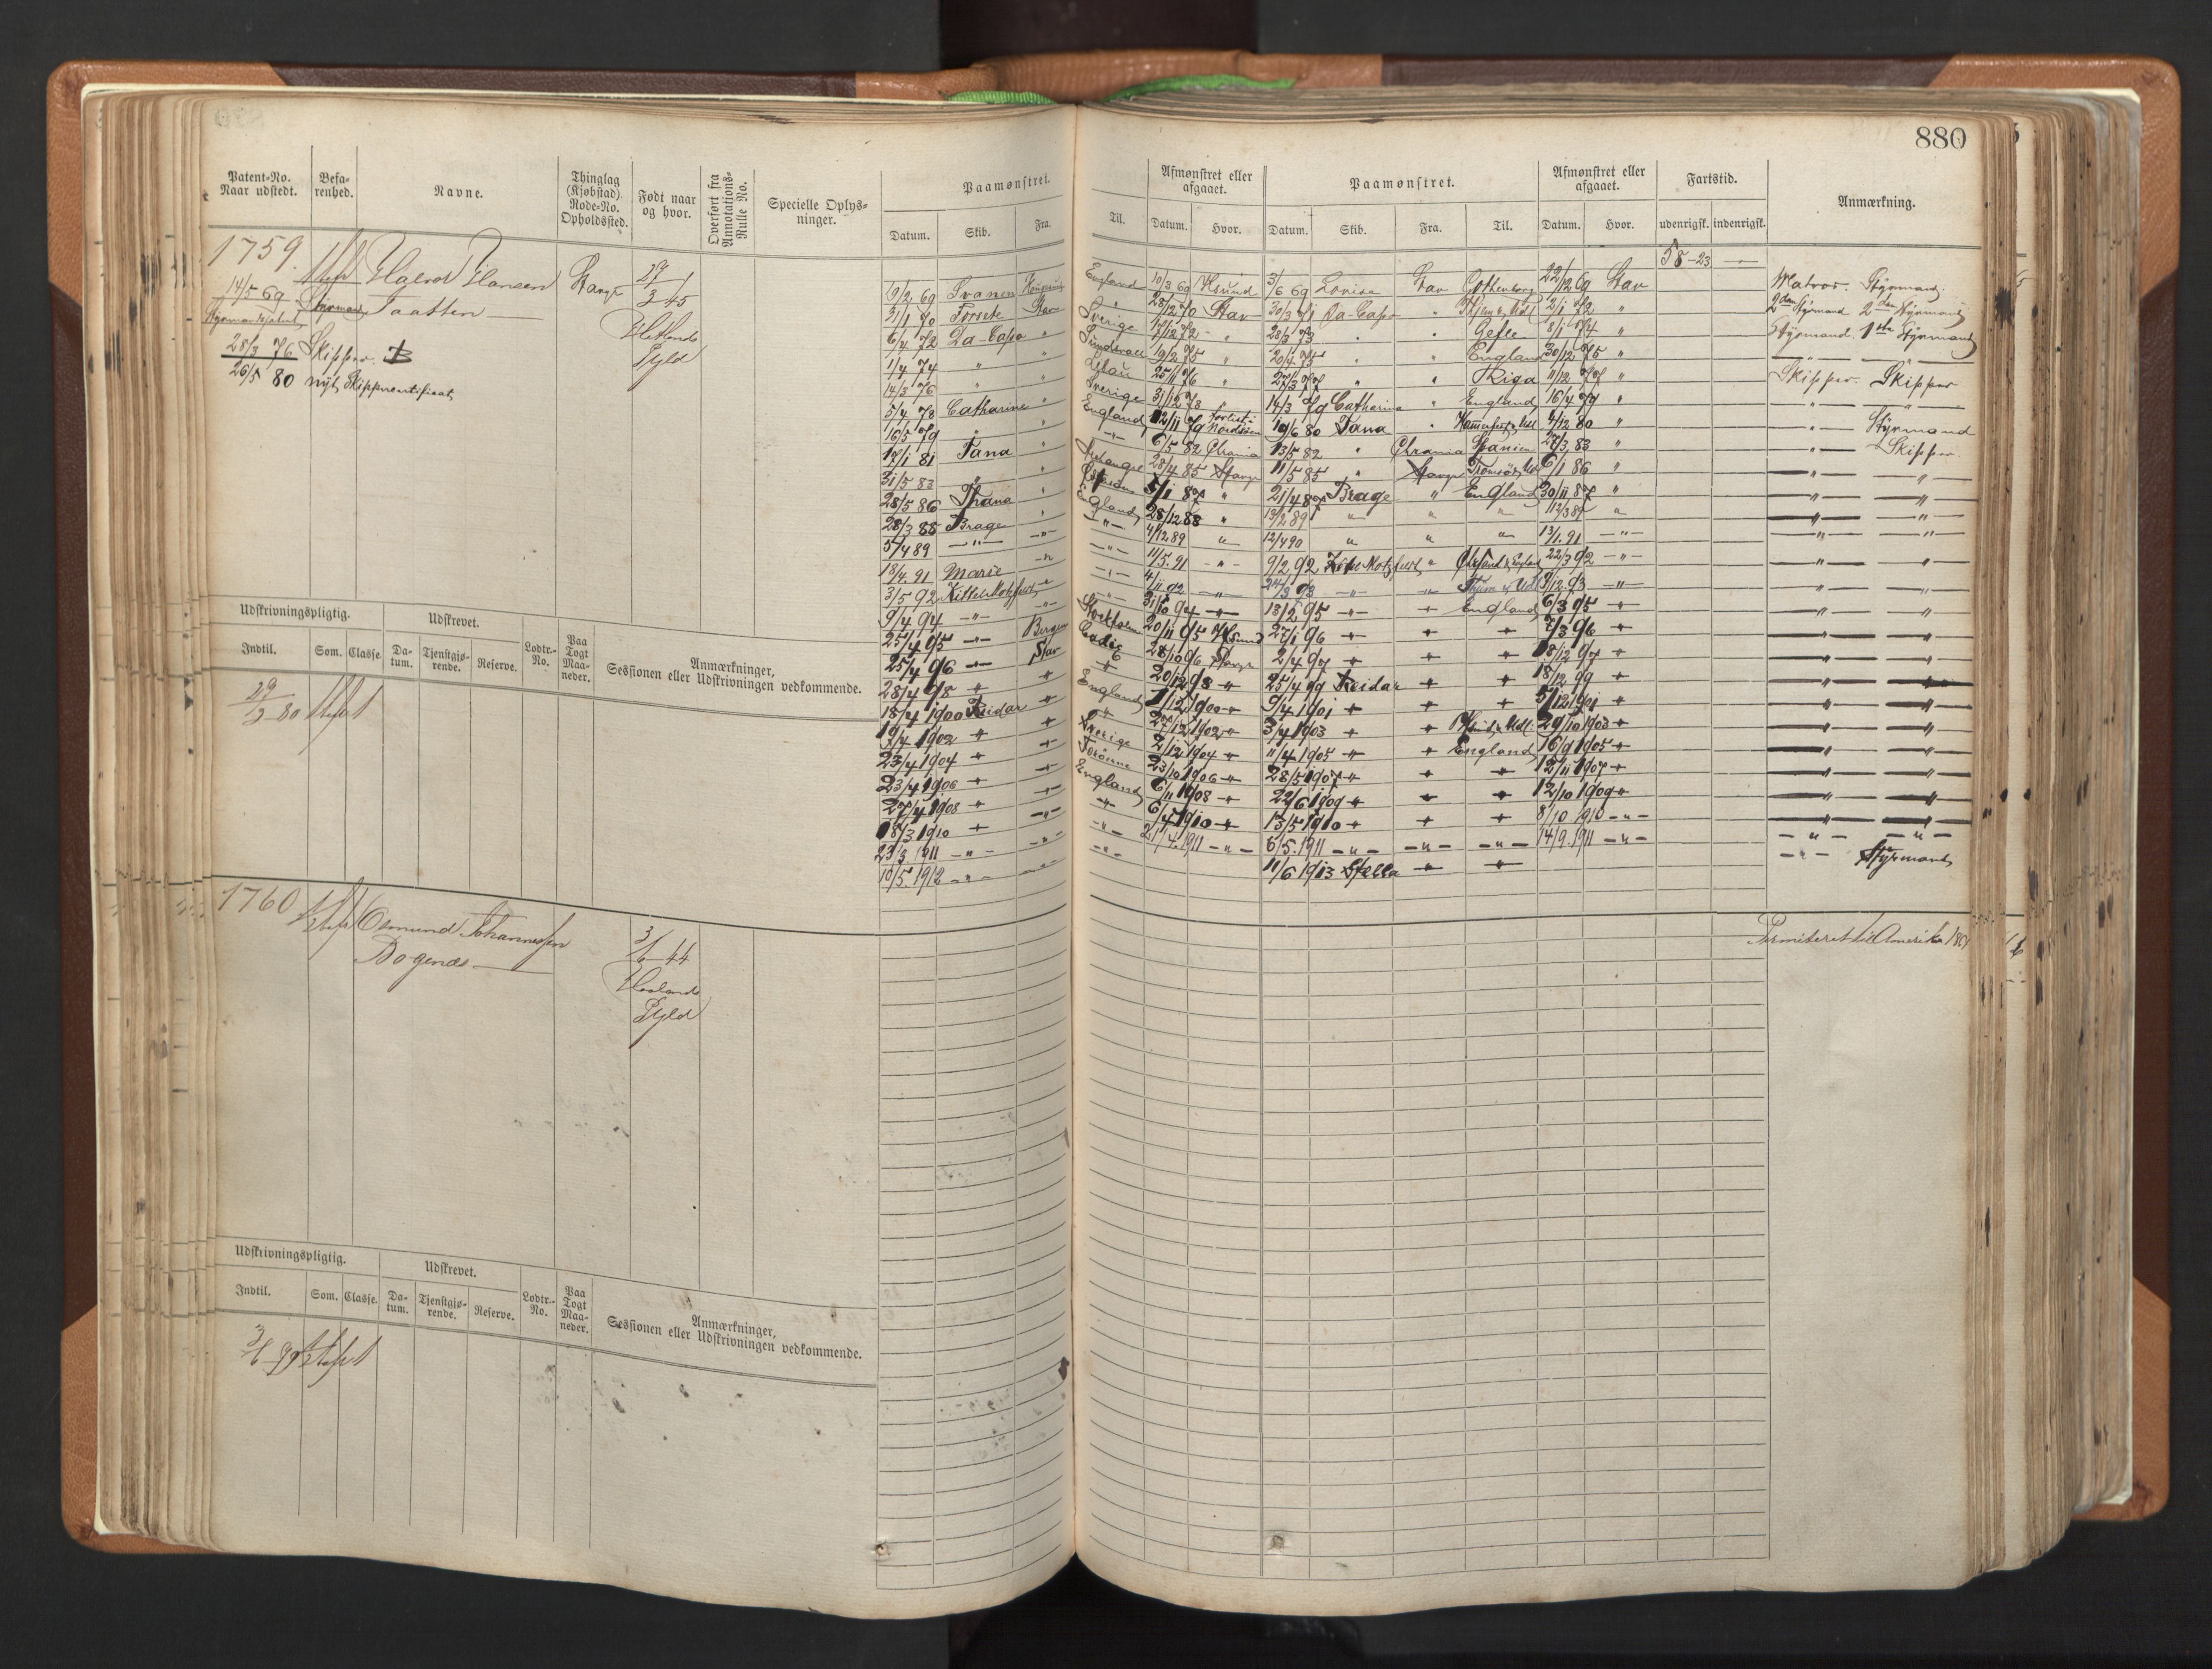 880
Patent-No. Naar udstedt.
Befa-renhed.
Navne.
Thinglag (Kjøbstad) Rode-No. Opholdssted.
Født naar og hvor.
Overført fra Annotations-Rulle No.
Specielle Oplys-ninger.
Paamønstret.
Datum. Skib. Fra. Til.
Afmønstret eller afgaaet.
Datum. Hvor.
Paamønstret.
Datum. Skib. Fra. Til.
Afmønstret eller afgaaet.
Datum. Hvor.
Fartstid.
udenrigsk. indenrigsk.
Anmærkning.
1759.
14/5 69
Halvor Hansen
Taatten
Stavgr
29/3 45
Hetlands
Pgld
28/3 76 Skipper. B
26/5 80 nyt Skippercertificat
58-23
9/2 69 Svanen
England 10/3 69 Hsund 3/6 69 Lovisa Stav Gothenborg 22/12 69 Stav Matros. Styrmand.
31/1 70 Forsete Stav
" 28/12 70 Stav 30/3 71 Da-Capo " 2/1 72 " 2den Styrmand 2den Styrmand
6/4 72 Da-Capo "
Sverige 17/12 72 " 28/3 73 " " Gefle 8/1 74 " Styrmand. 1ste Styrmand
1/4 74 " "
Sundsvall 19/2 75 " 20/4 75 " " England 30/12 75 "
14/3 76 " "
Libau 25/11 76 " 27/3 77 " " Riga 11/12 77 " Skipper. Skipper
5/4 78 Catharine "
Sverige 31/12 78 " 14/3 79 Catharina " England 16/4 79 "
16/5 79 " "
England 12/11 79 Forlist i Nordsøen 19/6 80 Tana " Hammerfest & Udl 4/12 80 " Styrmand
17/1 81 Tana "
6/5 82 Chrania 13/5 82 " Chrania Spanien 27/3 83 " Skipper.
31/5 83 " "
28/4 85 Stavgr 11/5 85 " Stavgr Tromsø & Udl 6/1 86 "
28/5 86 Thana "
5/1 87 " 21/4 87 Brage " England 30/11 87 "
28/3 88 Brage "
England 28/12 88 " 13/2 89 " " " 11/3 89 "
5/4 89 —"— —"—
—"— 4/12 89 " 12/4 90 " " " 13/1. 91 —"—
18/4. 91 Marie —"—
—"— 11/5. 91 —"— 9/2 92 " 22/3 92 —"—
3/5 92
24/3 93 —"— " 9/12 93 —"—
9/4 94 —"— —"—
31/10 94 —"— 18/2 95 —"— " England 6/3 95 "
25/4 95 —"— Bergen
Stockholm 20/11 95 Hsund 27/1 96 " " " 7/3 96 "
25/4 96 —"— Stav
Cadix 28/10 96 Stavgr 2/4 97 " " " 18/12 97 "
28/4 98 " "
" 20/12 98 " 25/4 99 Reidar " " 18/12 99 "
18/4 1900 Reidar "
England 1/12 1900 " 9/4 1901 " " " 5/12 1901 "
19/4 1902 " "
" 27/12 1902 " 3/4 1903 " " 29/10 1903 "
23/4 1904 " "
Sverige 2/12 1904 " 11/4 1905 " " England 16/9 1905 "
23/4 1906 " "
Færøerne 23/10 1906 " 28/5 1907 " " " 12/11 1907 "
27/4 1908 " "
England 6/11 1908 " 22/6 1909 " " " 12/10 1909 "
18/3 1910 " —"—
" 6/4 1910 " 13/5 1910 " " " 8/10 1910 —"—
23/3 1911 —"— —"—
—"— 21/4. 1911 —"— 6/5. 1911 —"— —"— —"— 14/9. 1911 —"— —"— —"—
10/5. 1912 —"— —"—
—"— 11/6 1913 Stella " " —"— Styrmand
Udskrivningspligtig.
Udskrevet.
Indtil. Som. Classe. Da-tum. Tjenstgjø-rende. Reserve. Lodtr.-No. Paa Togt Maa-neder.
Anmærkninger, Sessionen eller Udskrivningen vedkommende.
29/3 80
1760
Osmund Johannessen
Bogenæs
3/6 44
Haalands
Pgld
Permiteret til Amerika
Udskrivningspligtig.
Udskrevet.
Indtil. Som. Classe. Da-tum. Tjenstgjø-rende. Reserve. Lodtr.-No. Paa Togt Maa-neder.
Anmærkninger, Sessionen eller Udskrivningen vedkommende.
3/6 79